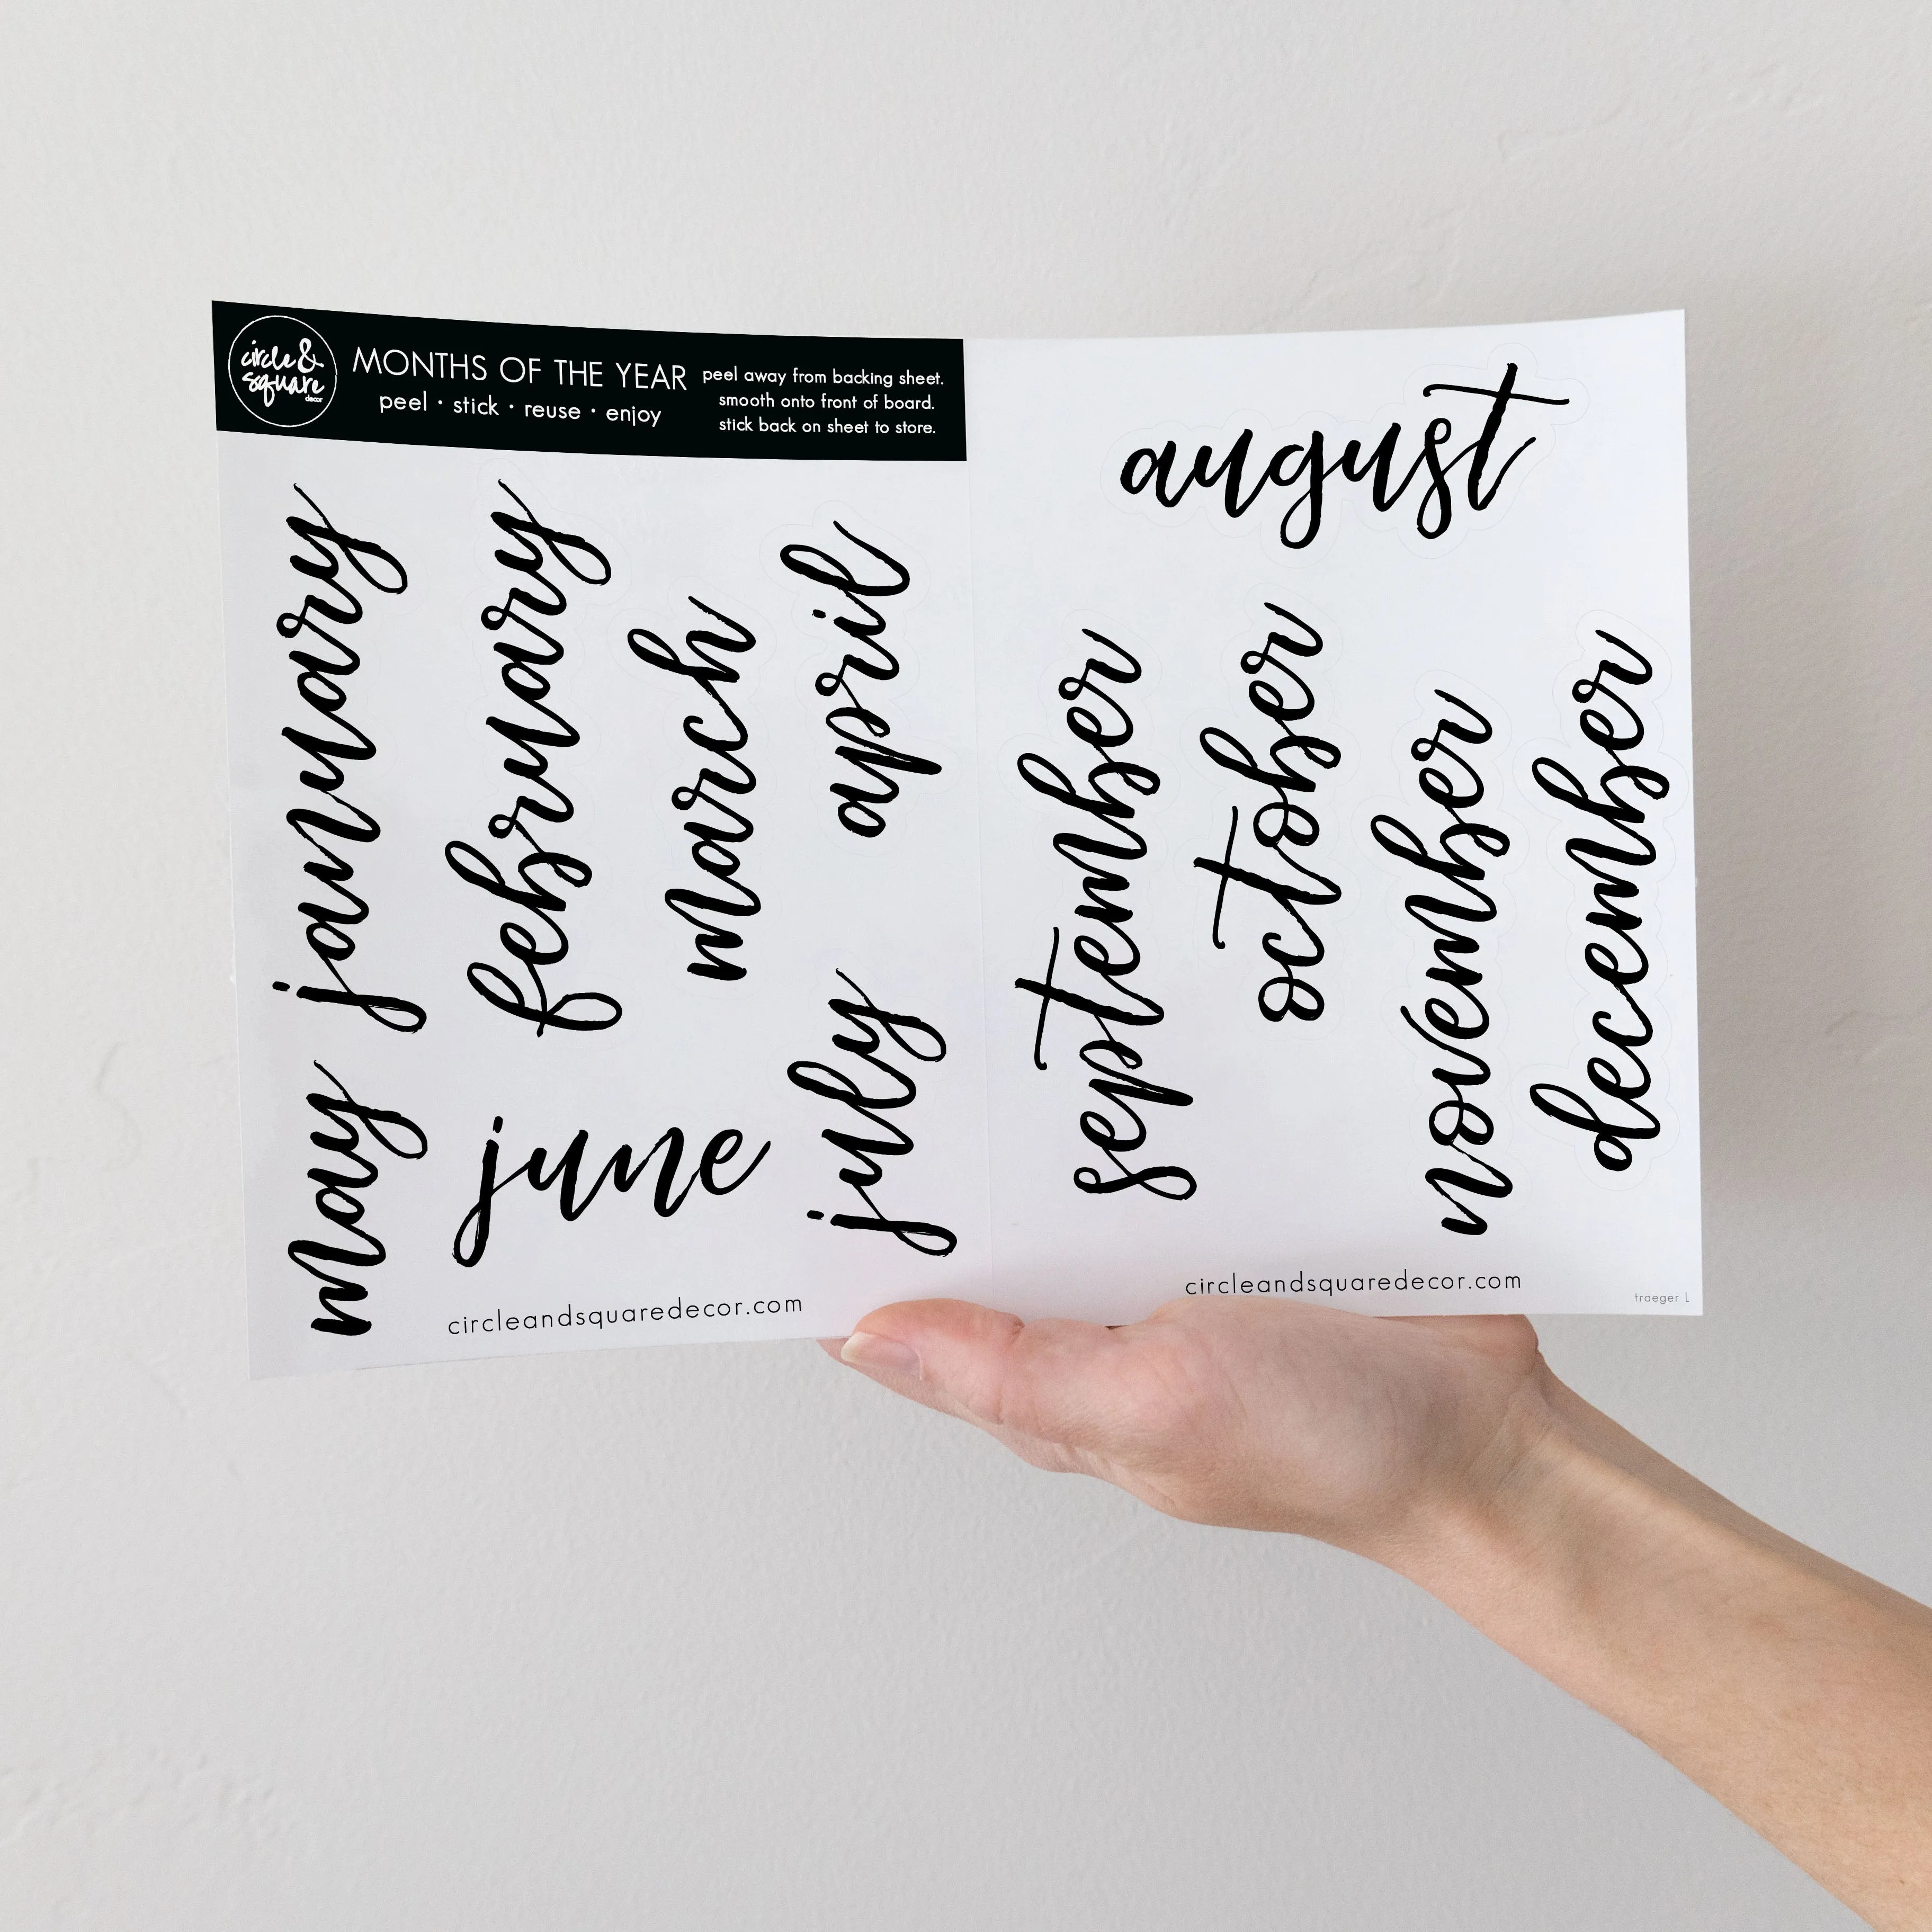 circle &
square
decor
MONTHS OF THE YEAR
peel · stick · reuse · enjoy
peel away from backing sheet.
smooth onto front of board.
stick back on sheet to store.
january
february
march
april
may
june
july
circleandsquaredecor.com
august
september
october
november
december
circleandsquaredecor.com
traeger L